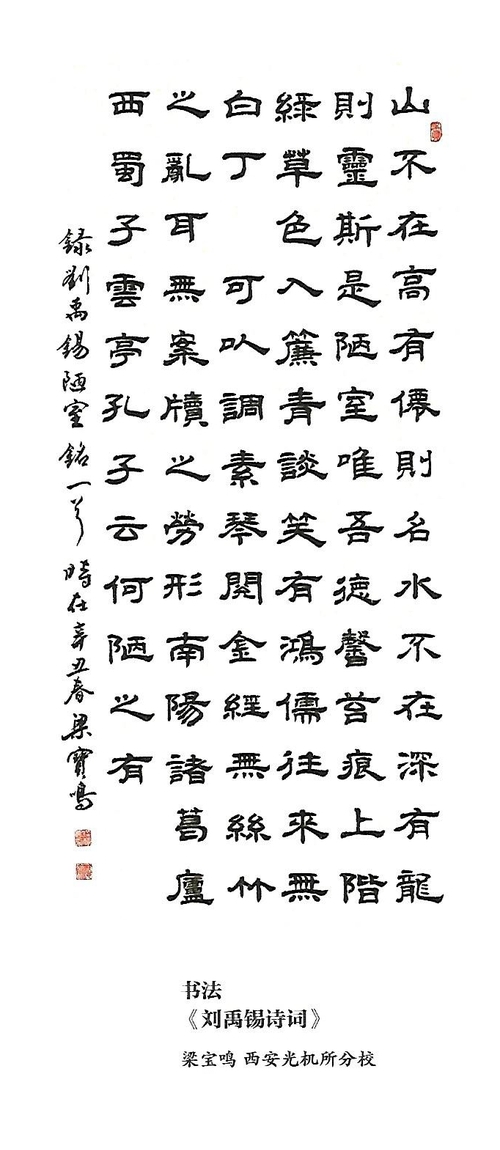 山不在高有僊則名水不在深有龍
則靈斯是陋室唯吾德馨苔痕上階
綠草色入簾青談笑有鴻儒往來無
白丁 可㕥調素琴閱金經無絲竹
之亂耳無案牘之勞形南陽諸葛廬
西蜀子雲亭孔子云何陋之有
録劉禹錫陋室銘一首 時在辛丑春梁寶鳴
书法
《刘禹锡诗词》
梁宝鸣 西安光机所分校